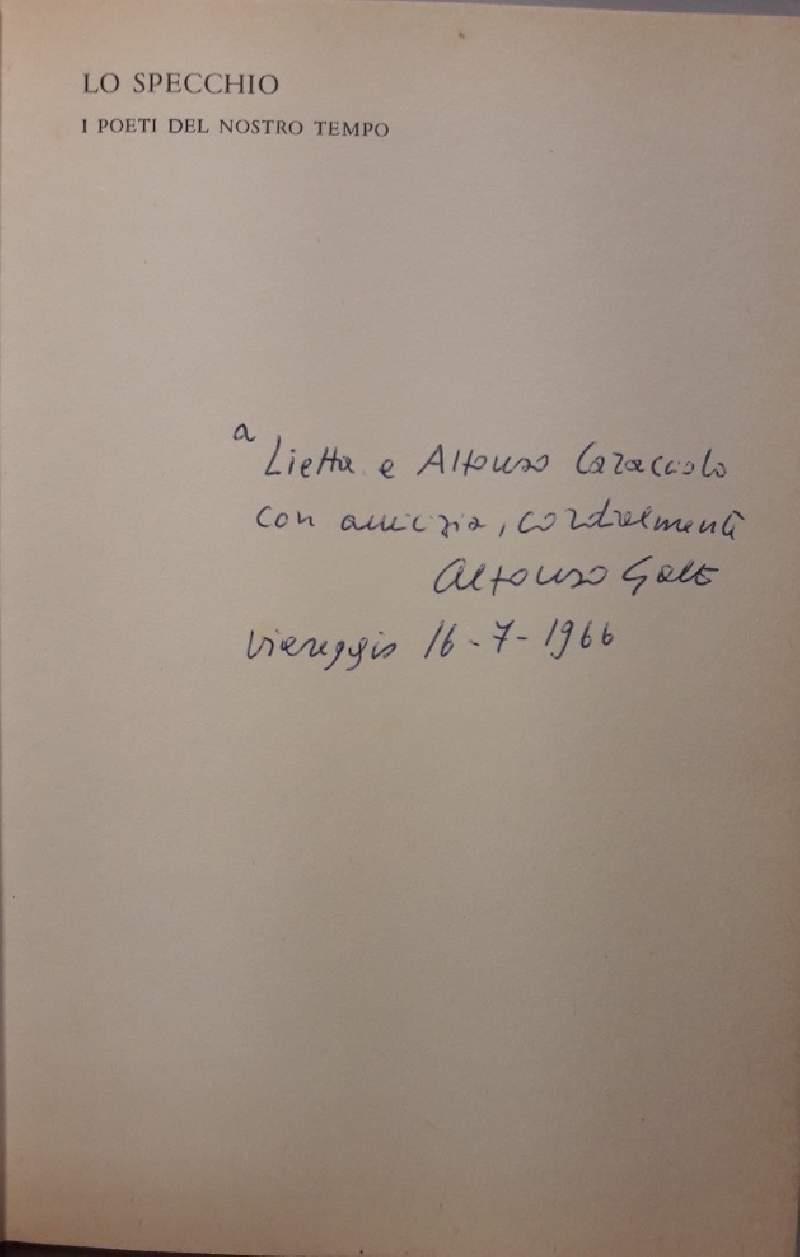 LO SPECCHIO
I POETI DEL NOSTRO TEMPO
a
Lietta e Alfonso Caracciolo
con amicizia, cordialmente
Alfonso Gatto
Viareggio 16-7-1966